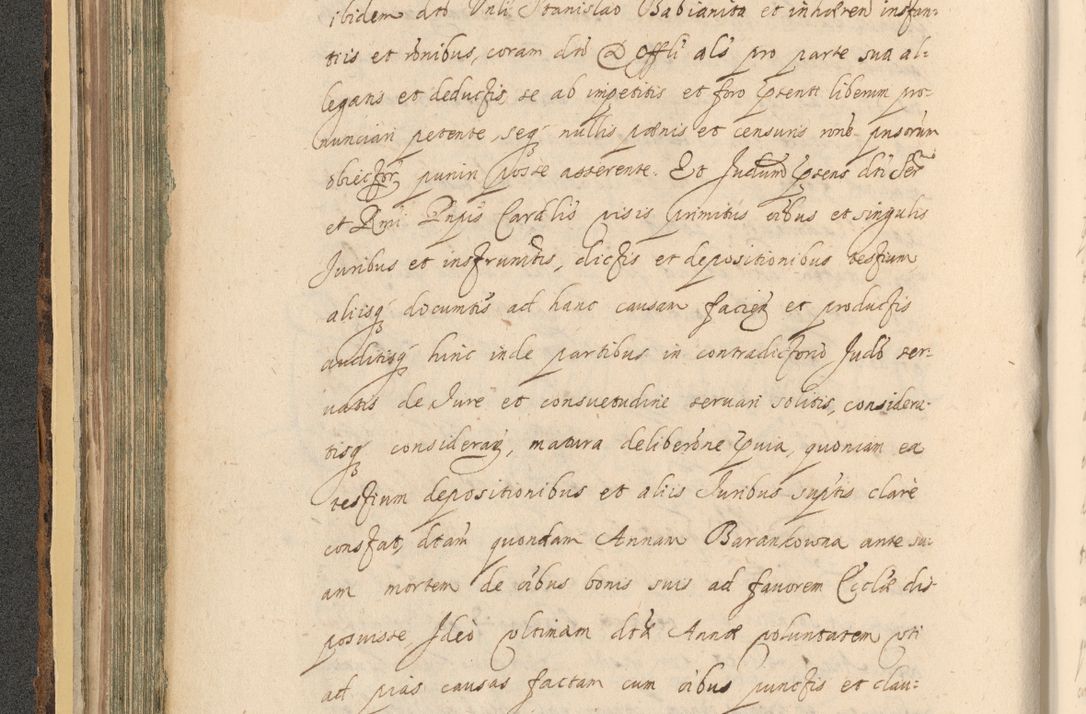 ibidem dto Vnli Stanislao Babianita et inhæren instan:
tiis et rōnibus, coram dto D Offli als pro parte sua al:
legans et deductis, se ab impetitis et foro psenti liberum pro:
nunciari petente, seq nullis pœnis et censuris rōne pnsorum
obiector, puniri posse asserente. Et Judum psens dti Ser
et Rmi Pnpis Cardlis visis primitus oībus et singulis
Juribus et instrumtis, dictis et depositionibus testium
aliisq documtis ad hanc causam facien et productis
auditisq hinc inde partibus in contradictorio Judo ser:
vatis de Jure et consuetudine servari solitis, considera:
tisq consideran, matura deliberōne pvia, quoniam ex
testium depositionibus et aliis Juribus suptis clare
constat, dtam quondam Annam Barankowna ante su:
am mortem de oībus bonis suis ad favorem Ecclæ dis:
posuisse, Ideo ultimam dtæ Annæ voluntatem uti
ad pias causas factam cum oībus punctis et clau: